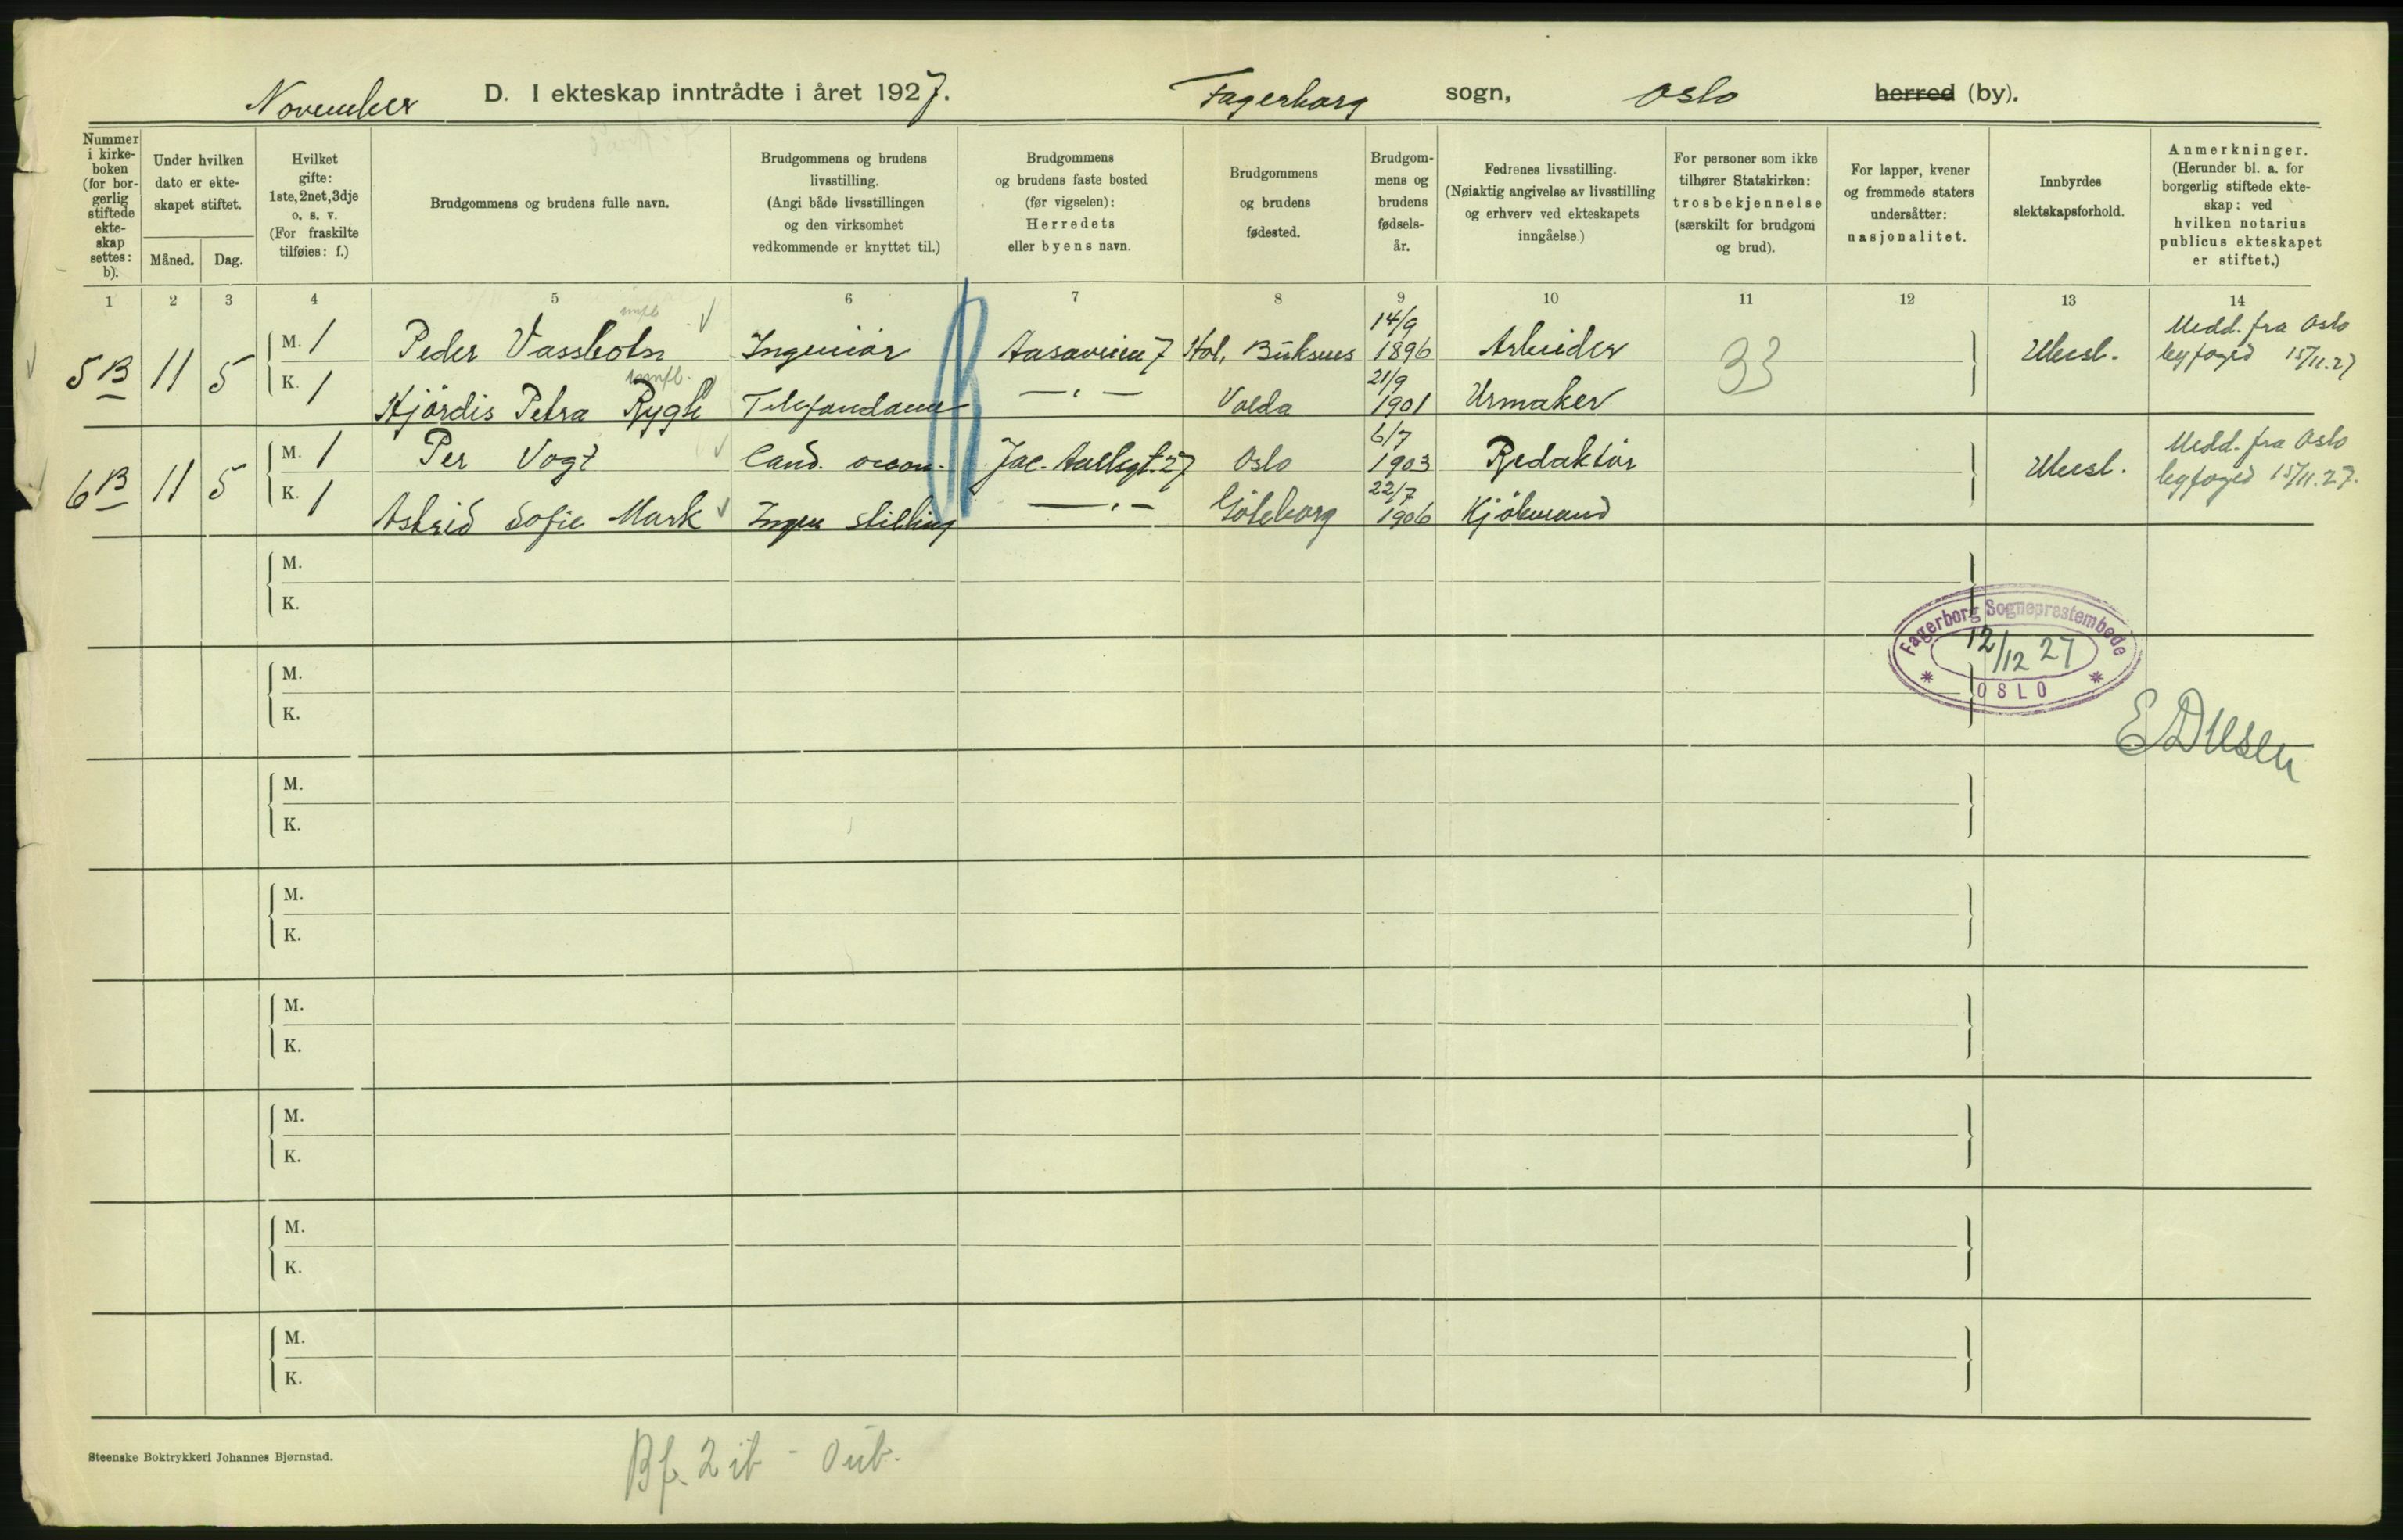 November D. I ekteskap inntrådte i året 1927. Fagerborg sogn, Oslo herred (by).
Nummer i kirke-boken (for bor-gerlig stiftede ekte-skap settes: b).
Under hvilken dato er ekte-skapet stiftet.
Måned. Dag.
Hvilket gifte: 1ste, 2net, 3dje o. s. v. (For fraskilte tilføies: f.)
Brudgommens og brudens fulle navn.
Brudgommens og brudens livsstilling. (Angi både livsstillingen og den virksomhet vedkommende er knyttet til.)
Brudgommens og brudens faste bosted (før vigselen): Herredets eller byens navn.
Brudgommens og brudens fødested.
Brudgom-mens og brudens fødsels-år.
Fedrenes livsstilling. (Nøiaktig angivelse av livsstilling og erhverv ved ekteskapets inngåelse)
For personer som ikke tilhører Statskirken: trosbekjennelse (særskilt for brudgom og brud).
For lapper, kvener og fremmede staters undersåtter: nasjonalitet.
Innbyrdes slektskapsforhold.
Anmerkninger. (Herunder bl. a. for borgerlig stiftede ekte-skap: ved hvilken notarius publicus ekteskapet er stiftet.)
1 2 3 4 5 6 7 8 9 10 11 12 13 14
innfl.
5 B 11 5 M. 1 Peder Vassbotn Ingeniør Aasaveien 7 Hol, Buksnes 14/9 1896 Arbeider 33 Ubesl. Medd. fra Oslo byfoged 15/11.27
innfl.
K. 1 Hjørdis Petra Rygh Telefondame — " — Volda 21/9 1901 Urmaker
6 B 11 5 M. 1 Per Vogt Cand. oecon. Jac. Aallsgt. 27 Oslo 6/7 1903 Redaktør Ubesl. Medd. fra Oslo byfoged 15/11.27.
K. 1 Astrid Sofie Mark Ingen stilling — " — Göteborg 22/7 1906 Kjøbmand
M.
K.
Fagerborg Sogneprestembede
12/12 27
OSLO
M.
K.
M.
K.
M.
K.
M.
K.
M.
K.
M.
K.
M.
K.
Steenske Boktrykkeri Johannes Bjørnstad.
Bf. 2 ib - 0 ub.